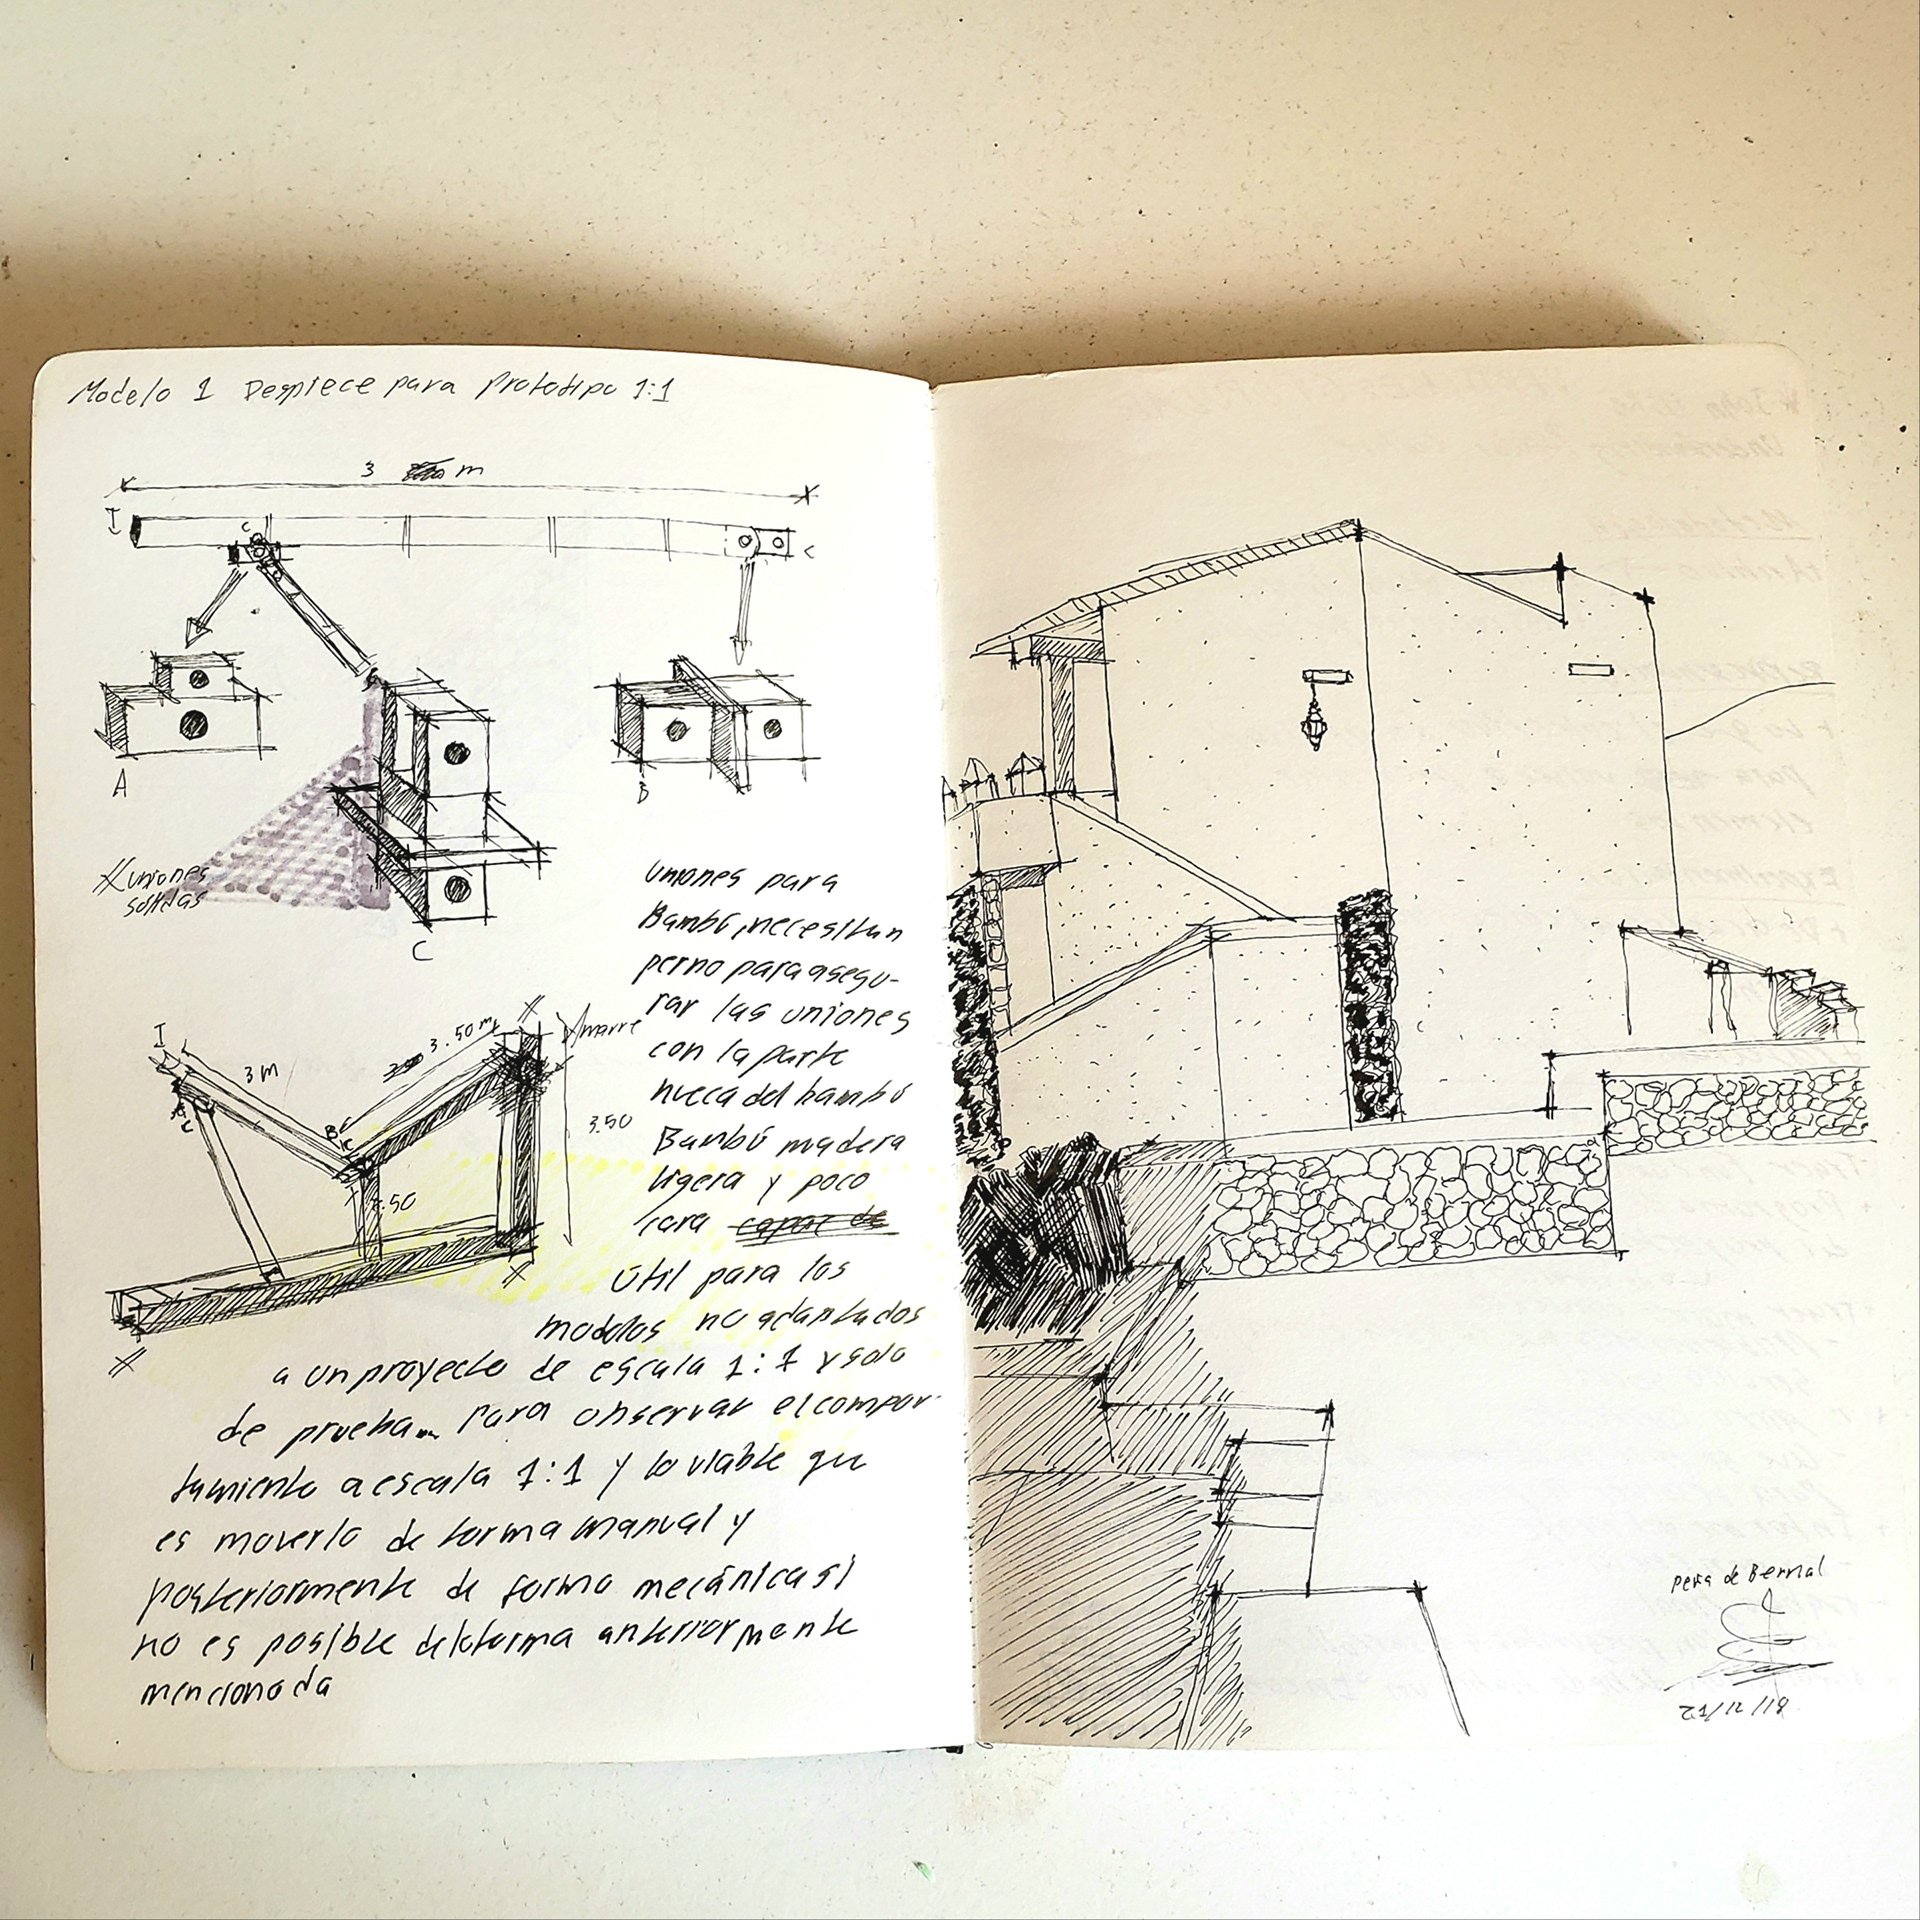 Modelo 1 Despiece para Prototipo 1:1
3 m
I
C
C
A
B
uniones
C
uniones para
Bambú, necesitan
perno para asegu-
rar las uniones
con la parte
hueca del bambú
Bambú madera
ligera y poco
cara capaz de
útil para los
modelos no adaptados
a un proyecto de escala 1:1 y solo
de prueba... Para observar el compor-
tamiento a escala 1:1 y lo viable que
es moverlo de forma manual y
posteriormente de forma mecánica si
no es posible de la forma anteriormente
mencionada
I
3 m
3.50 m
Amarre
A
C
B
C
3.50
1.50
Peña de Bernal
21/12/18